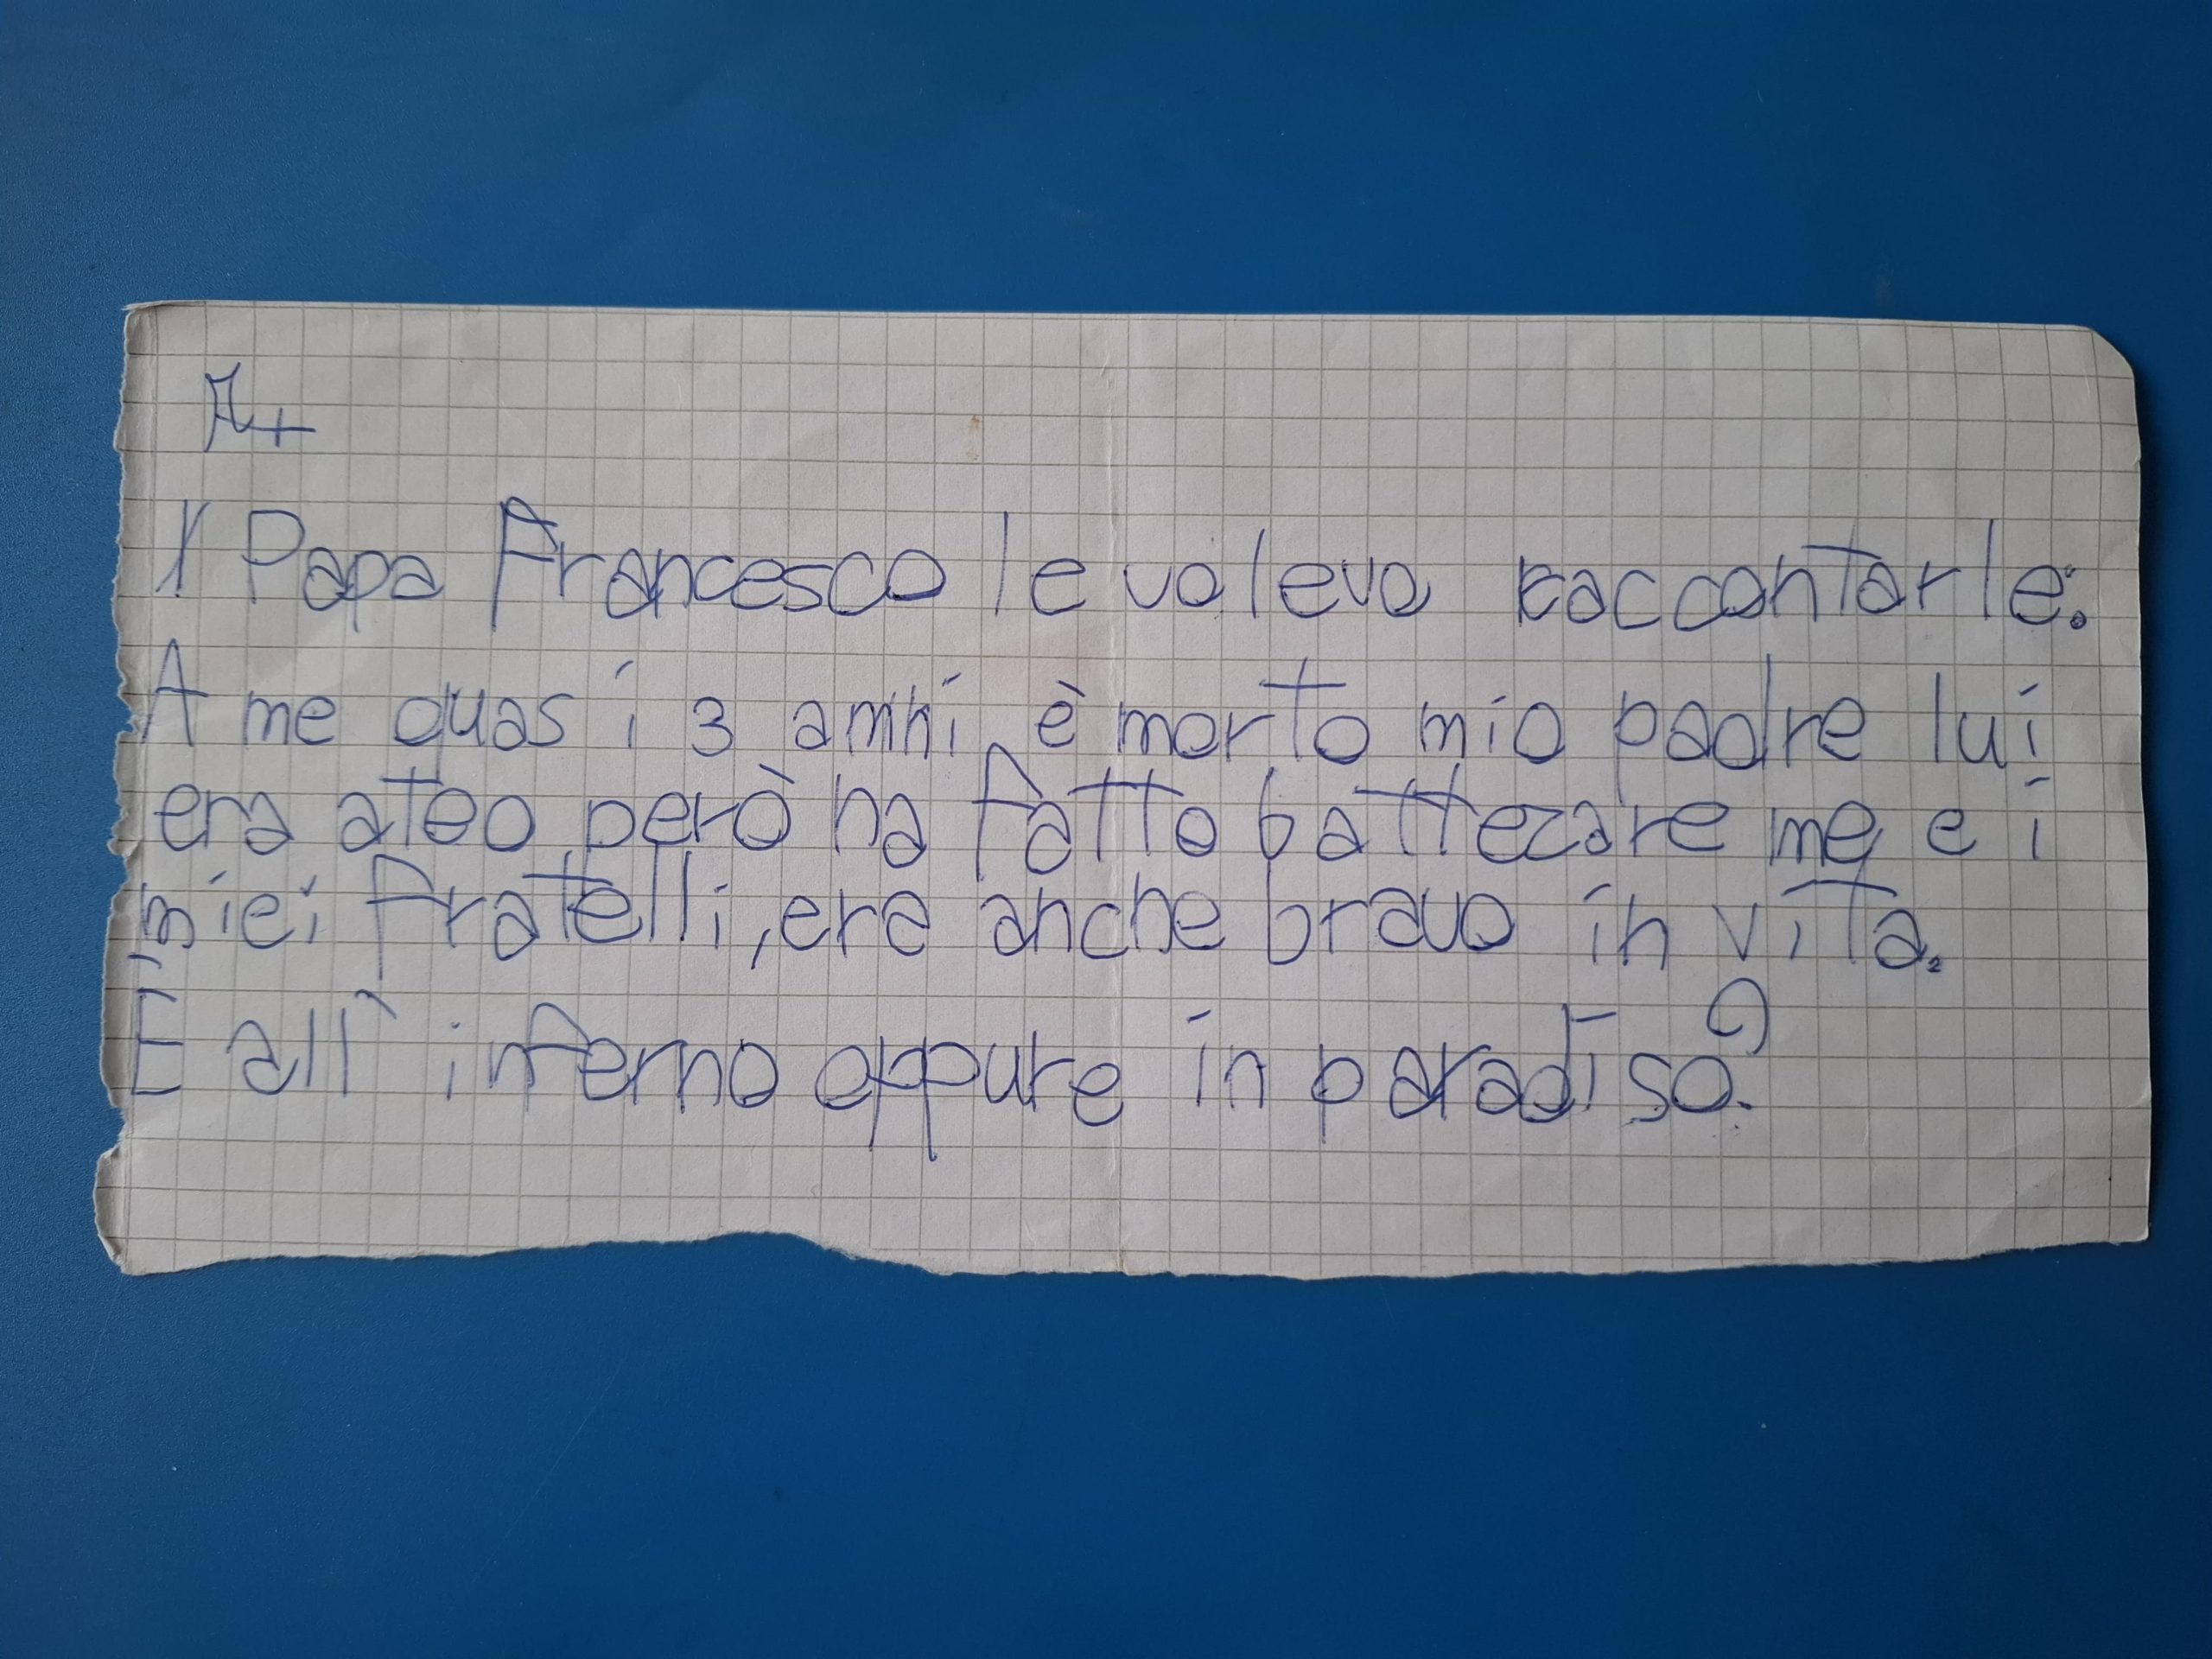 A+
1 Papa Francesco le volevo raccontarle:
A me quasi 3 anni è morto mio padre lui
era ateo però ha fatto battezare me e i
miei fratelli, era anche bravo in vita.
È all' inferno oppure in paradiso?